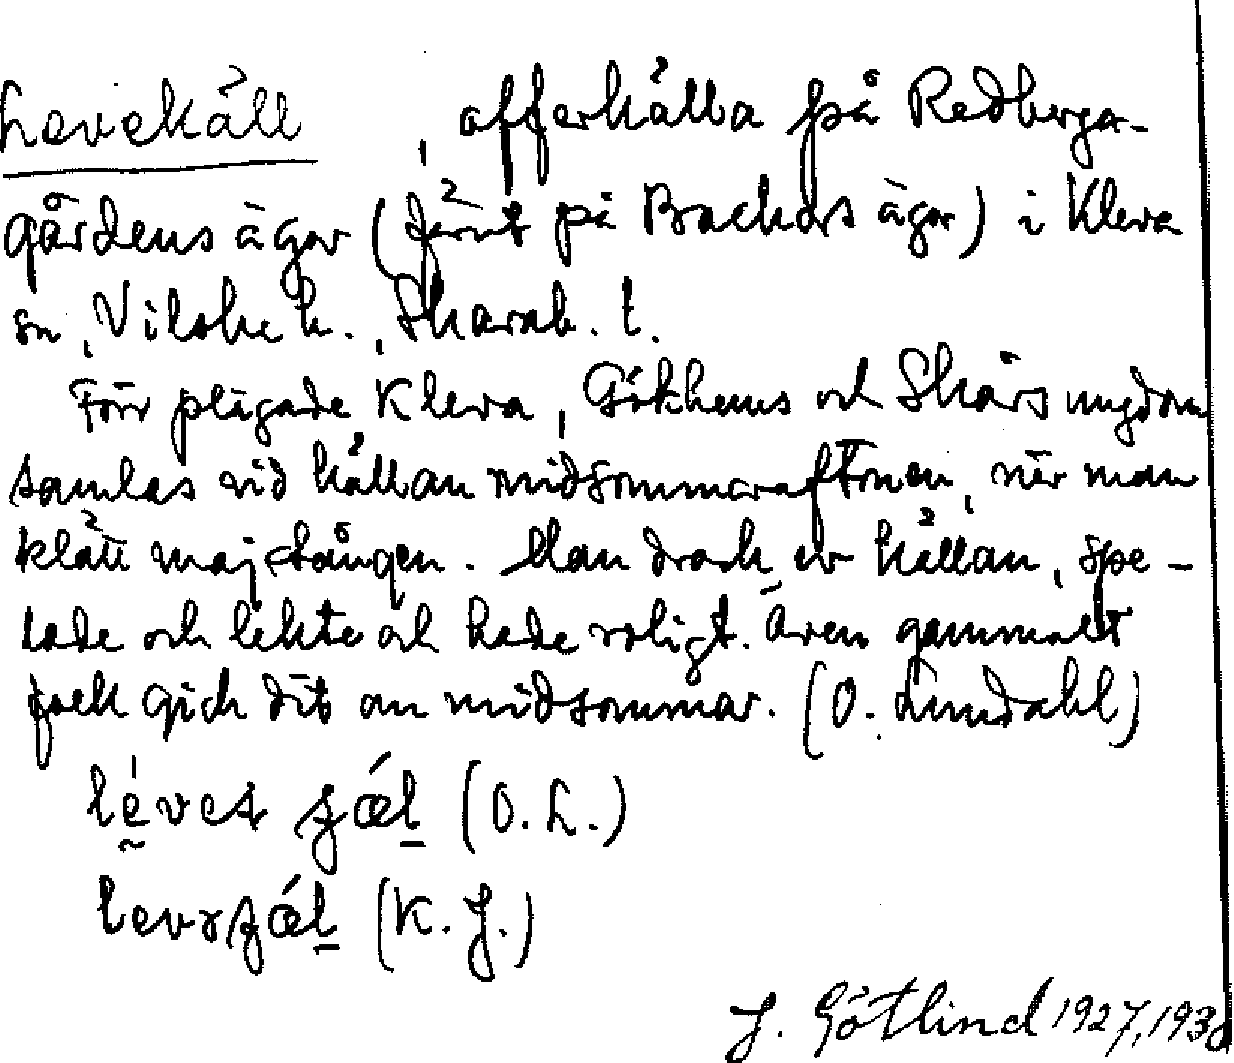 Levekäll, offerkälla på Redberga-
gårdens ägor (förut på Backors ägor) i Kleva
sn, Vilske h., Skarab. l.
Förr plägade Kleva, Gökhems och Skärs ungdom
samlas vid källan midsommaraftonen, när man
klätt majstången. Man drack ur källan, spe-
lade och lekte och hade roligt. Även gammalt
folk gick dit om midsommar. (O. Lundahl)
(O. L.)
(K. J.)
J. Götlind 1927,